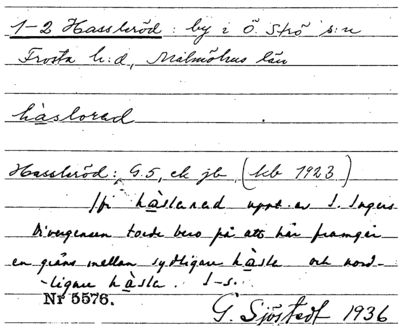 1-2 Hassleröd: by i Ö. Strö s:n
Frosta h:d, Malmöhus län
håslorad
Hassleröd: G.5, ek jb (kb 1923)
håslarad uppt. av I. Ingers
Divergensen torde bero på att här framgår
en gräns mellan sydligare håsla och nord-
-ligare håsla. I-s.
Nr 5576.
G. Sjöstedt 1936